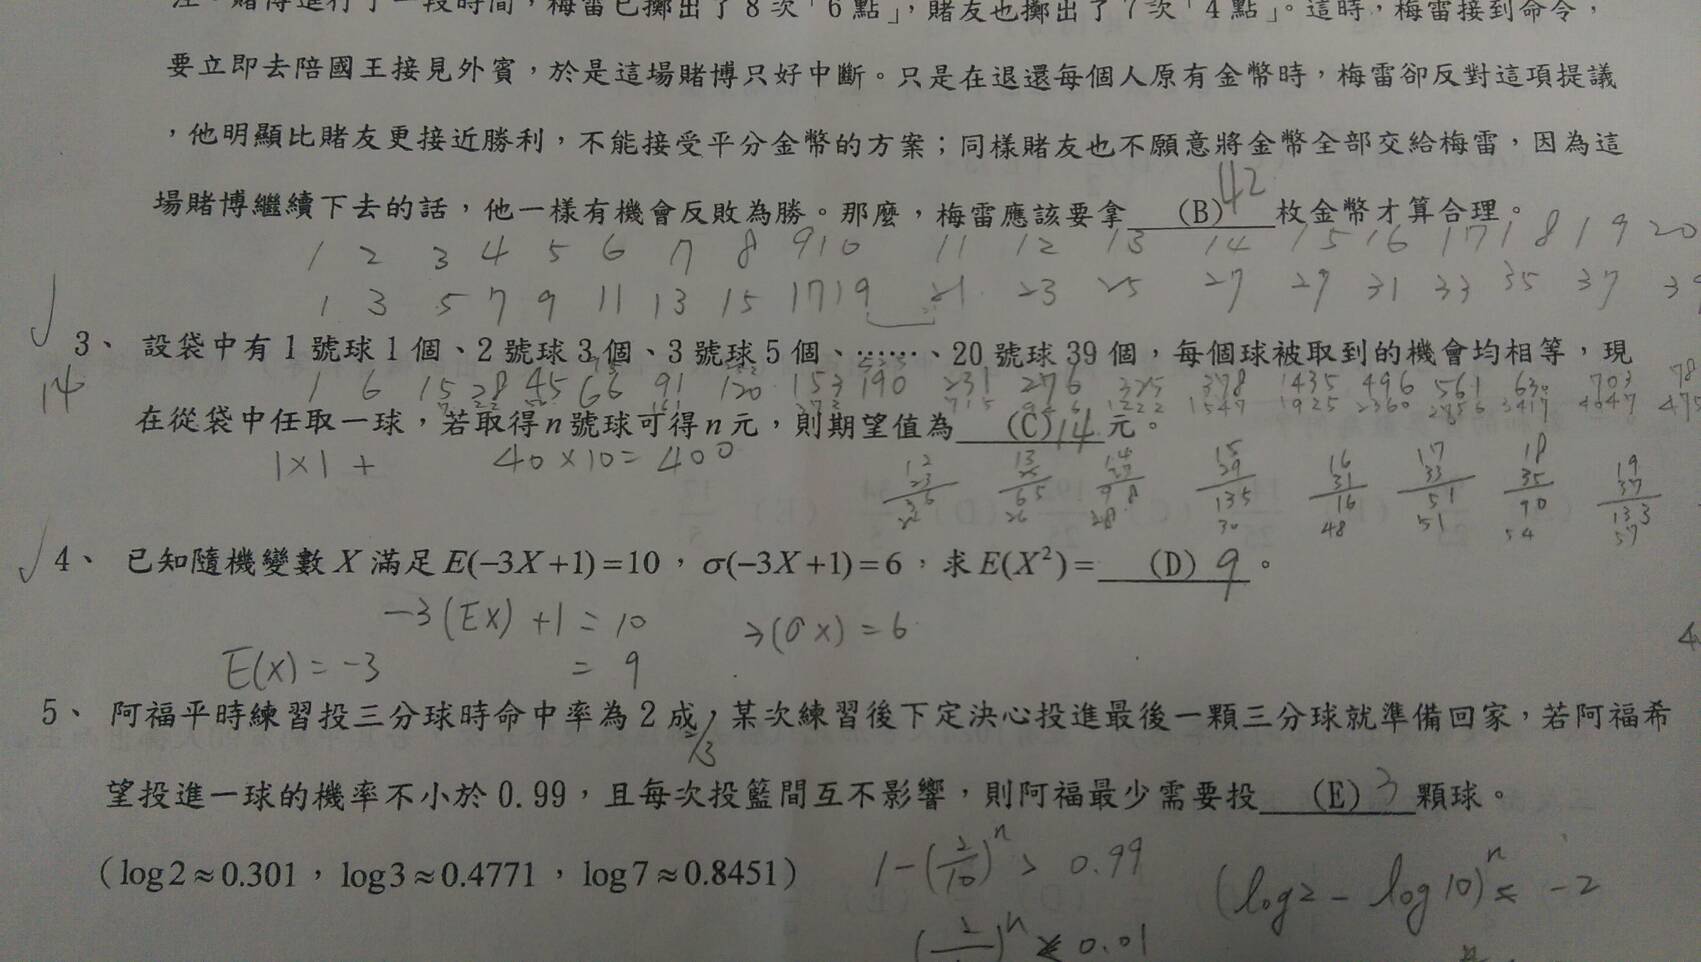 注。賭博進行了一段時間，梅雷已擲出了8次「6點」，賭友也擲出了7次「4點」。這時，梅雷接到命令，
要立即去陪國王接見外賓，於是這場賭博只好中斷。只是在退還每個人原有金幣時，梅雷卻反對這項提議
，他明顯比賭友更接近勝利，不能接受平分金幣的方案；同樣賭友也不願意將金幣全部交給梅雷，因為這
場賭博繼續下去的話，他一樣有機會反敗為勝。那麼，梅雷應該要拿 (B) 42 枚金幣才算合理。
1 2 3 4 5 6 7 8 9 10 11 12 13 14 15 16 17 18 19 20
1 3 5 7 9 11 13 15 17 19 21 23 25 27 29 31 33 35 37
3、 設袋中有1號球1個、2號球3個、3號球5個、……、20號球39個，每個球被取到的機會均相等，現
14 1 6 15 28 45 66 91 120 153 190 231 276 325 378 1435 496 561 630 703 78
在從袋中任取一球，若取得n號球可得n元，則期望值為 (C) 14 元。
1×1 + 40×10=400
12 13 14 15 16 17 18 19
23 25 27 29 31 33 35 37
36 65 98 135 16 51 90 133
26 28 30 48 51 54 57
4、 已知隨機變數X滿足E(−3X+1)=10，σ(−3X+1)=6，求E(X²)= (D) 9 。
-3(EX)+1=10 (σx)=6
E(X)=-3 =9
5、 阿福平時練習投三分球時命中率為2成，某次練習後下定決心投進最後一顆三分球就準備回家，若阿福希
望投進一球的機率不小於0.99，且每次投籃間互不影響，則阿福最少需要投 (E) 3 顆球。
（log2≈0.301，log3≈0.4771，log7≈0.8451）
1-(2/10)ⁿ > 0.99 (log2-log10)ⁿ -2
0.01